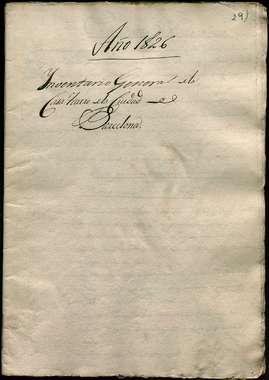 29)
Año 1826
Inventario General de
Casa Teatro de la Ciudad de
Barcelona.